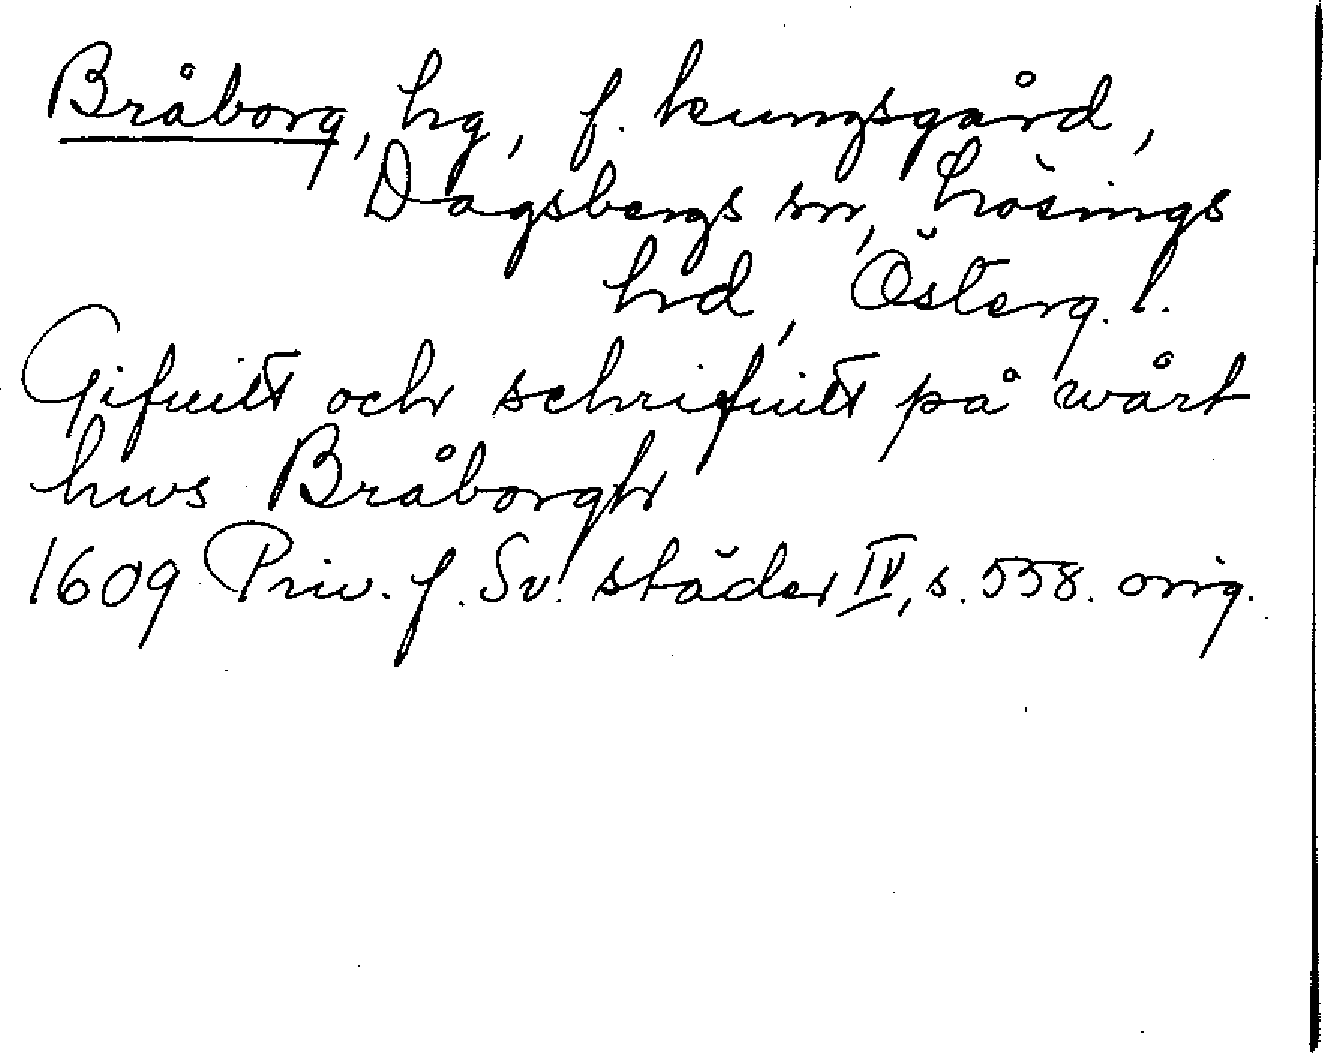 Bråborg, hg, f. kungsgård,
Dagsbergs sn, Lösings
hd, Österg. l.
Gifuitt och schrifuitt på wårt
hws Bråborgh
1609 Priv. f. Sv. städer IV, s. 558. orig.